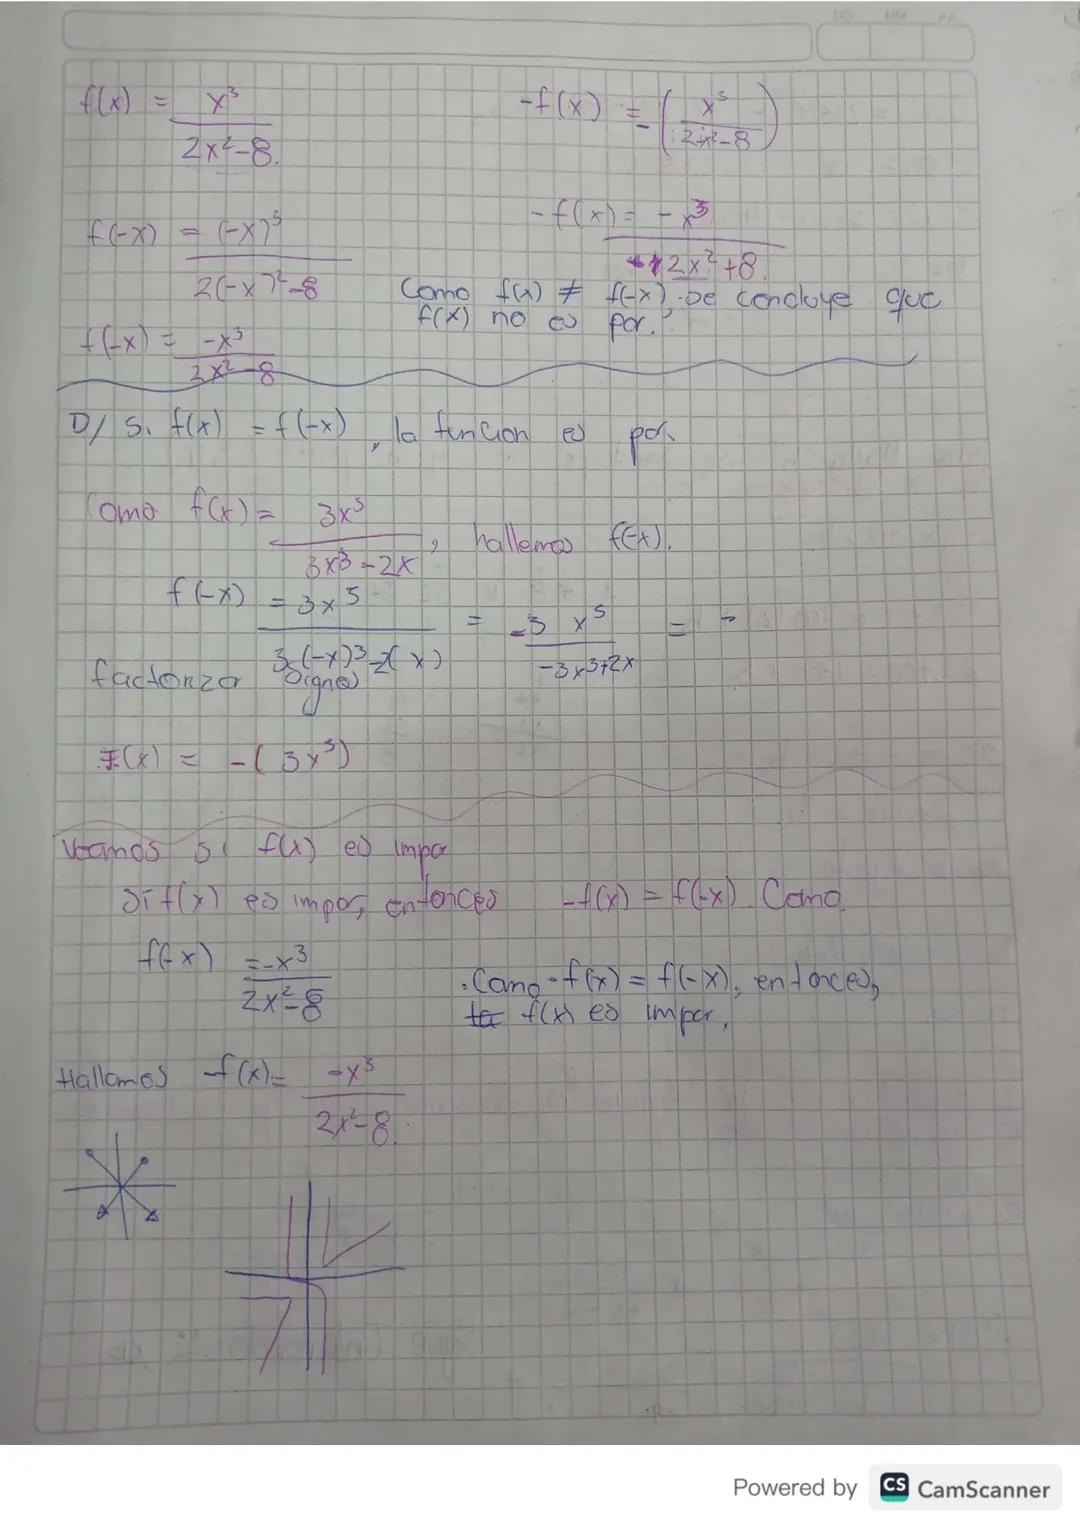 f(x) = x³ / 2x²-8.
-f(x) = -( x³ / 2x²-8 )
f(-x) = (-x)³ / 2(-x)²-8
-f(x) = -x³ / 2x²+8.
Como f(x) ≠ f(-x). Se concluye que
f(x) no es par.
f(-x) = -x³ / 2x²-8
D/ Si f(x) = f(-x), la funcion es par.
Como f(x) = 3x⁵ / 3x³-2x, hallemos f(-x).
f(-x) = 3x⁵ / 3(-x)³-2(x) = -3x⁵ / -3x³+2x = -
factorizar signos
f(x) = -(3x⁵)
Veamos si f(x) es impar
Si f(x) es impar, entonces -f(x) = f(-x). Como
f(-x) = -x³ / 2x²-8
. Como -f(x) = f(-x), entonces,
f(x) es impar.
Hallamos -f(x) = -x³ / 2x²-8.
Powered by CS CamScanner